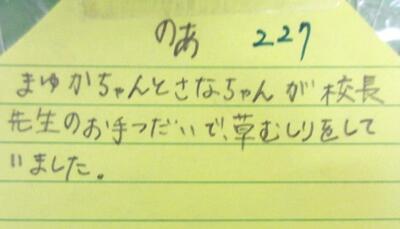 のあ 227
まゆかちゃんとさなちゃんが校長
先生のお手つだいで、草むしりをして
いました。